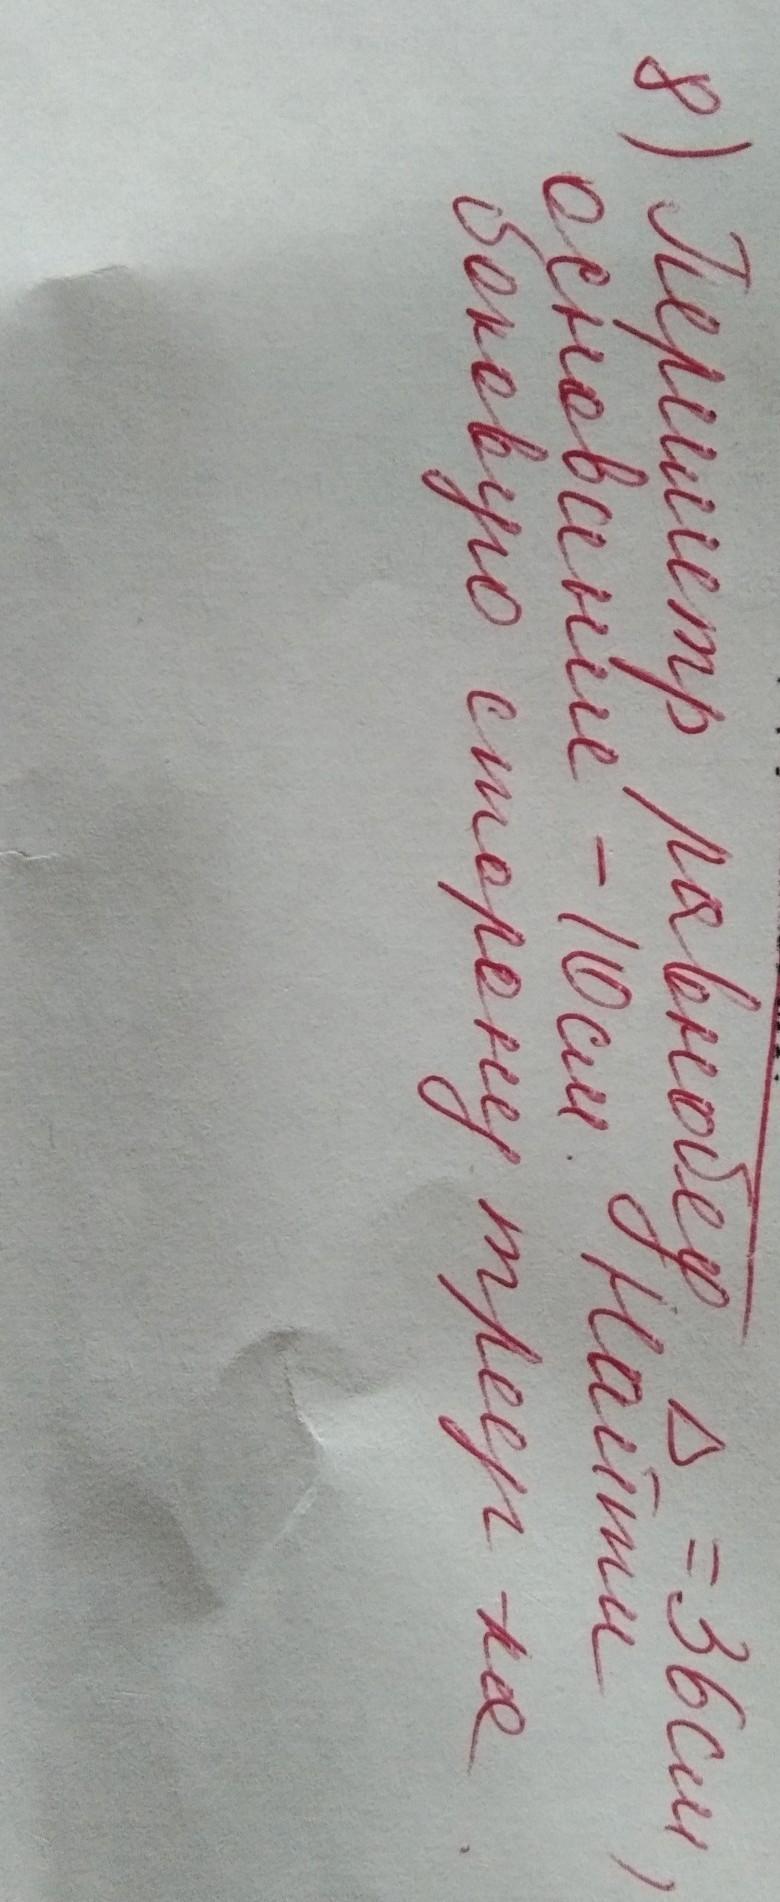 8) Периметр равнобер Δ = 36см,
основание - 10см. Найти
боковую сторону треуг-ка.